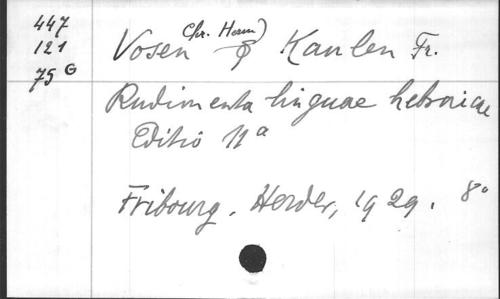 447
121
75 G
Vosen (Chr. Herm) & Kaulen Fr.
Rudimenta linguae hebraicae
Editio 11a
Fribourg. Herder, 1929. 8°